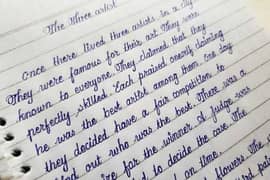 The three artist
Once there lived three artists in a city
They were famous for their art. They were
known to everyone. They claimed that they
perfectly skilled. Each praised oneself, claiming
he was the best artist among them. one day
they decided have a fair competition to
out who was the best. There was a
for the winner. A judge was
to decide the case. The
on time.
flowers. The